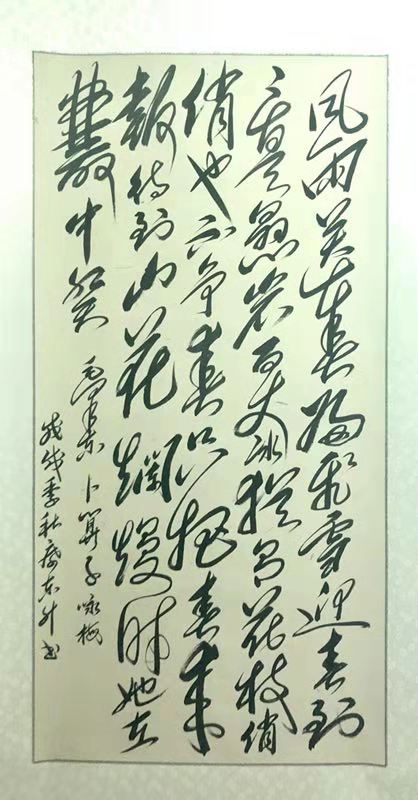 风雨送春归飞雪迎春到
已是悬崖百丈冰犹有花枝俏
俏也不争春只把春来
报待到山花烂熳时她在
丛中笑
毛泽东卜算子咏梅
戊戌季秋东升书